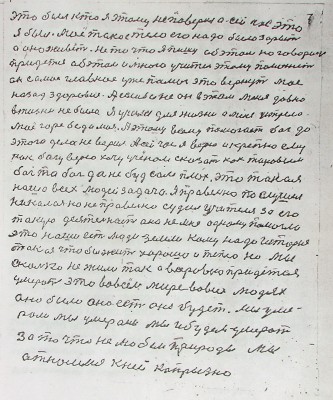 7
Это был кто я этому не поверил а сей час это
я был. Моё тело это его надо было зарыть
а оно живёт. Не то что я пишу об этом но говорить
придется об этом и много учит этому поможет
он самое главное уже помог это вернуть мое
назад здоровье. А если не он в этом меня давно
в жизни не было Я урод для жизни а мне
моё горе беда моя. Я этому вому помогает бог до
этого дела не верил А сей час я верю и крепко ему
как богу верю хочу учёном сказать как таковым
бог то бог да не будь сам плох. Это такая
нашо всех людей задача. Я правельно поступил
наказал но не правельно судил учителя за его
такую деятельность она не мне одному помогла
это нашо есть люди земли кому надо история
такая чтобы жит хорошо и тепло но мы
сколько не жили так а всеровно придётся
умерат Это вовсём мире вовсех людях
оно было оно есть оно будет. Мы уме-
рали мы умераем мы и будем умерат
За то что не любем природу мы
относимся к ней капризно